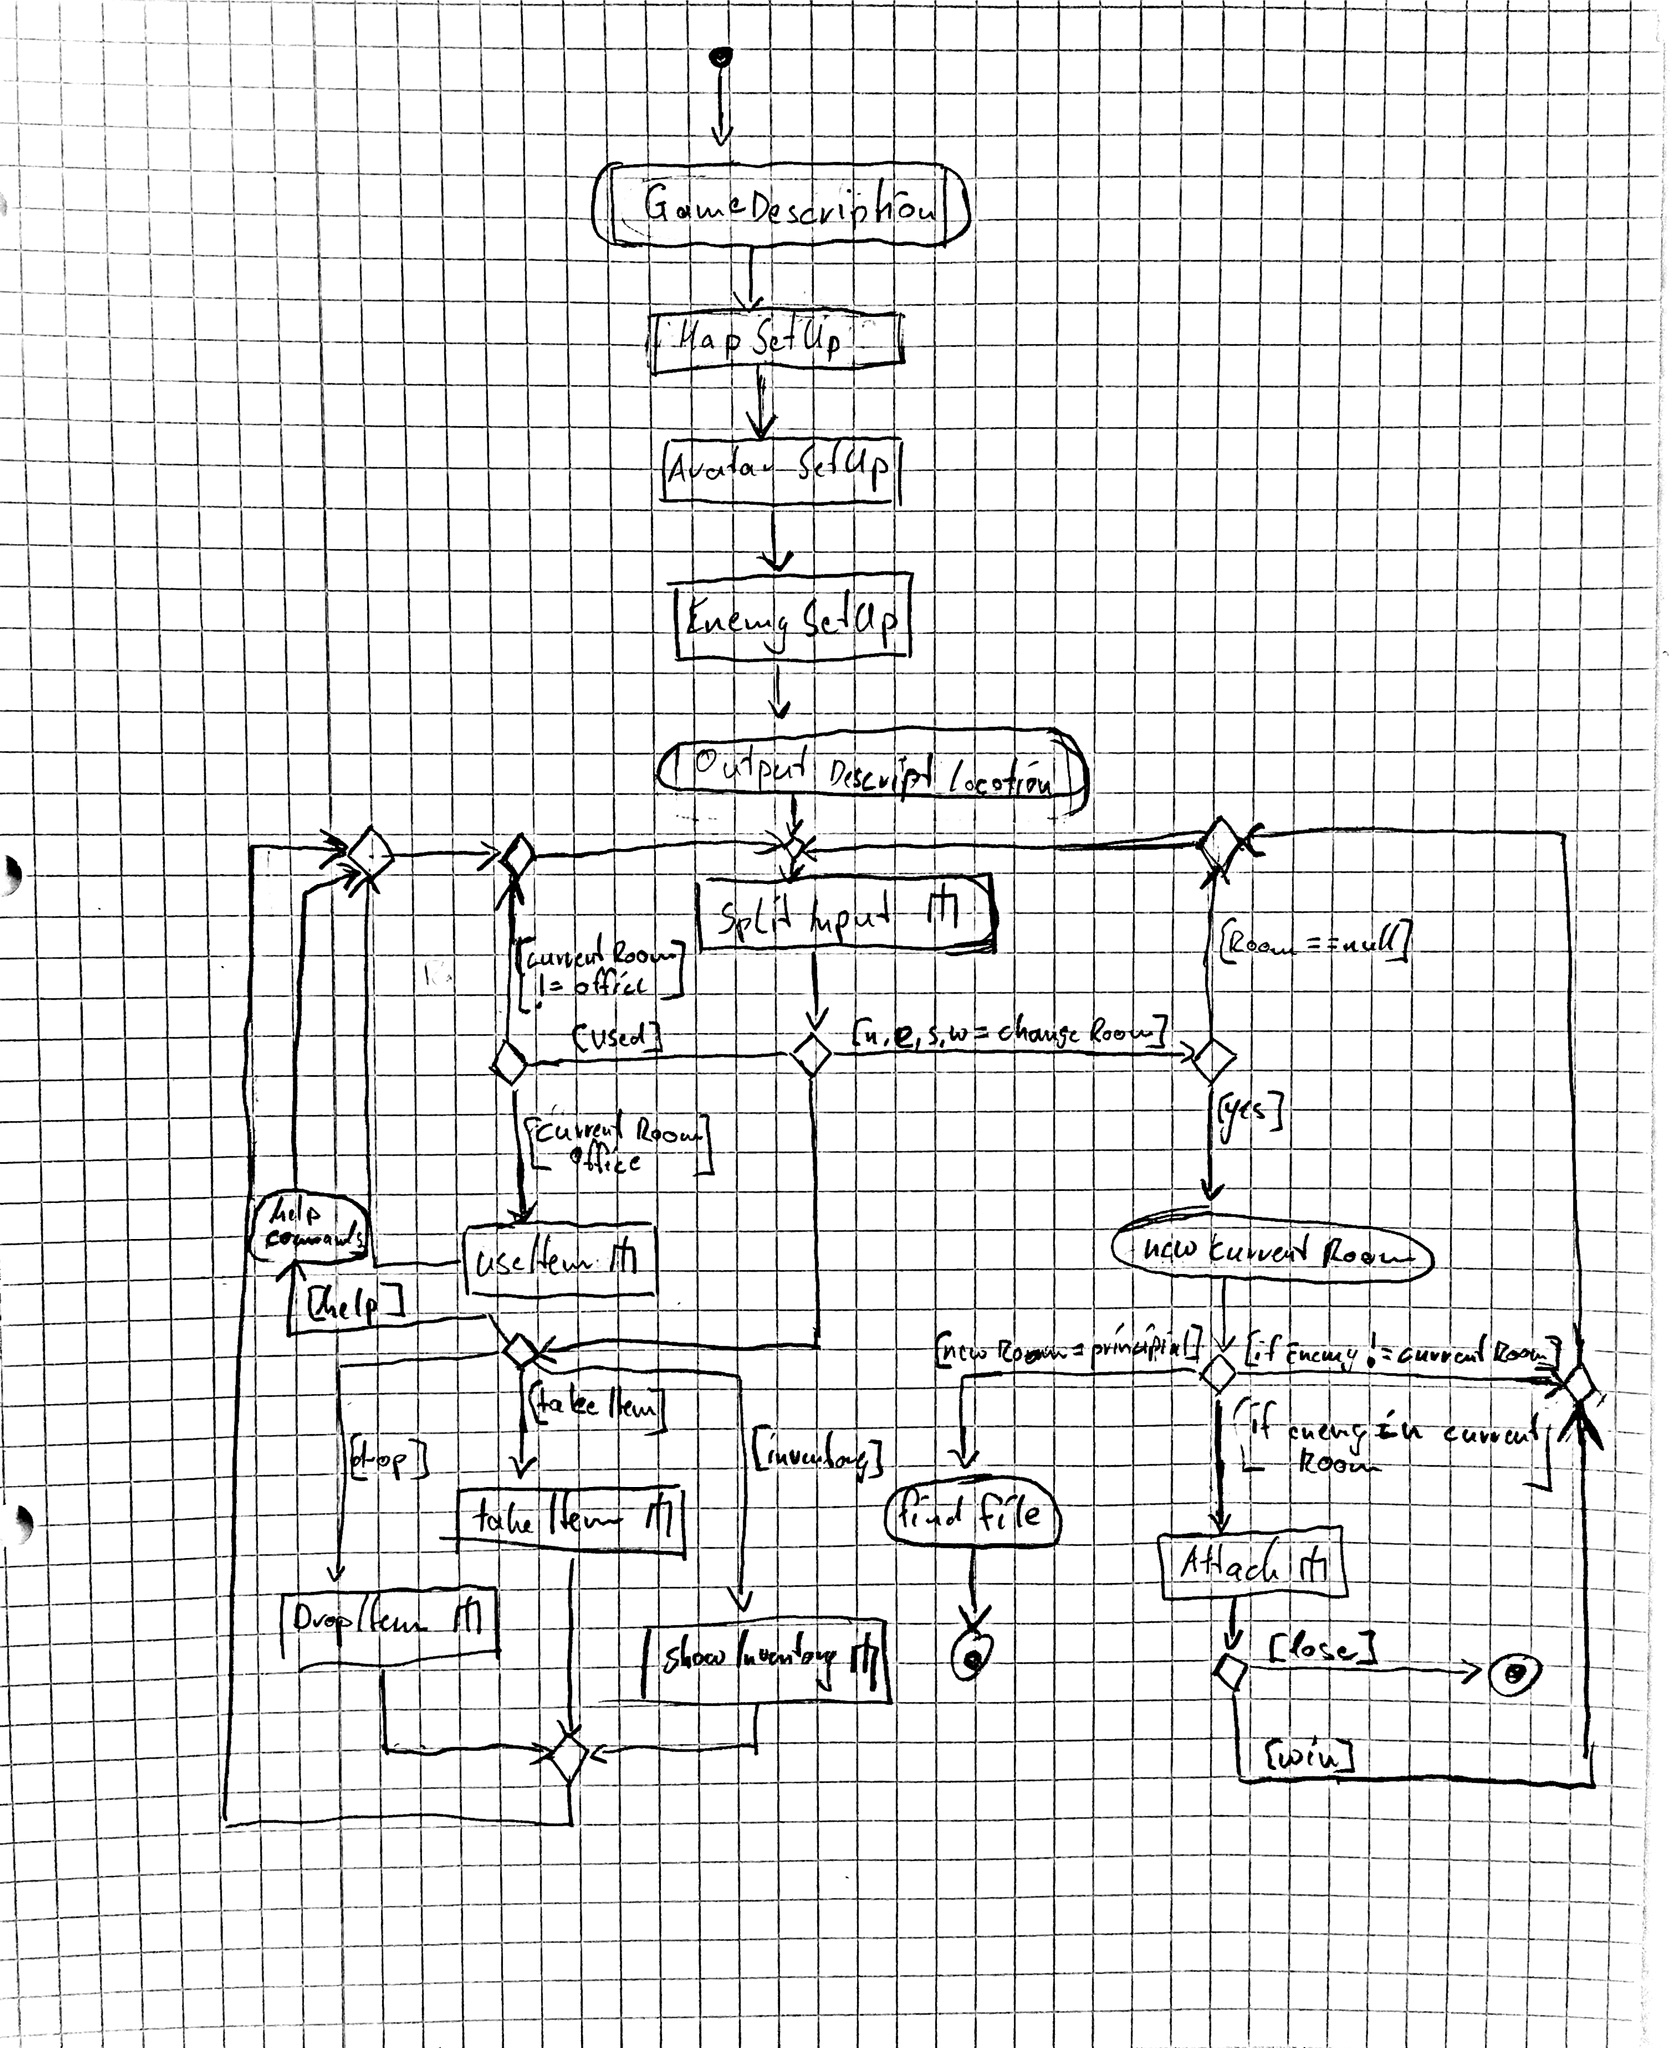 GameDescription
Map SetUp
Avatar SetUp
Enemy SetUp
Output Descript Location
Split Input
[current Room
!= office]
[Room ==null]
[used]
[n,e,s,w = change Room]
[current Room
office]
[yes]
help
commands
useItem
new current Room
[help]
[new Room = principial]
[if Enemy != current Room]
[take Item]
[if enemy in current
Room]
[drop]
[inventory]
take Item
find file
Attack
Drop Item
show Inventory
[lose]
[win]